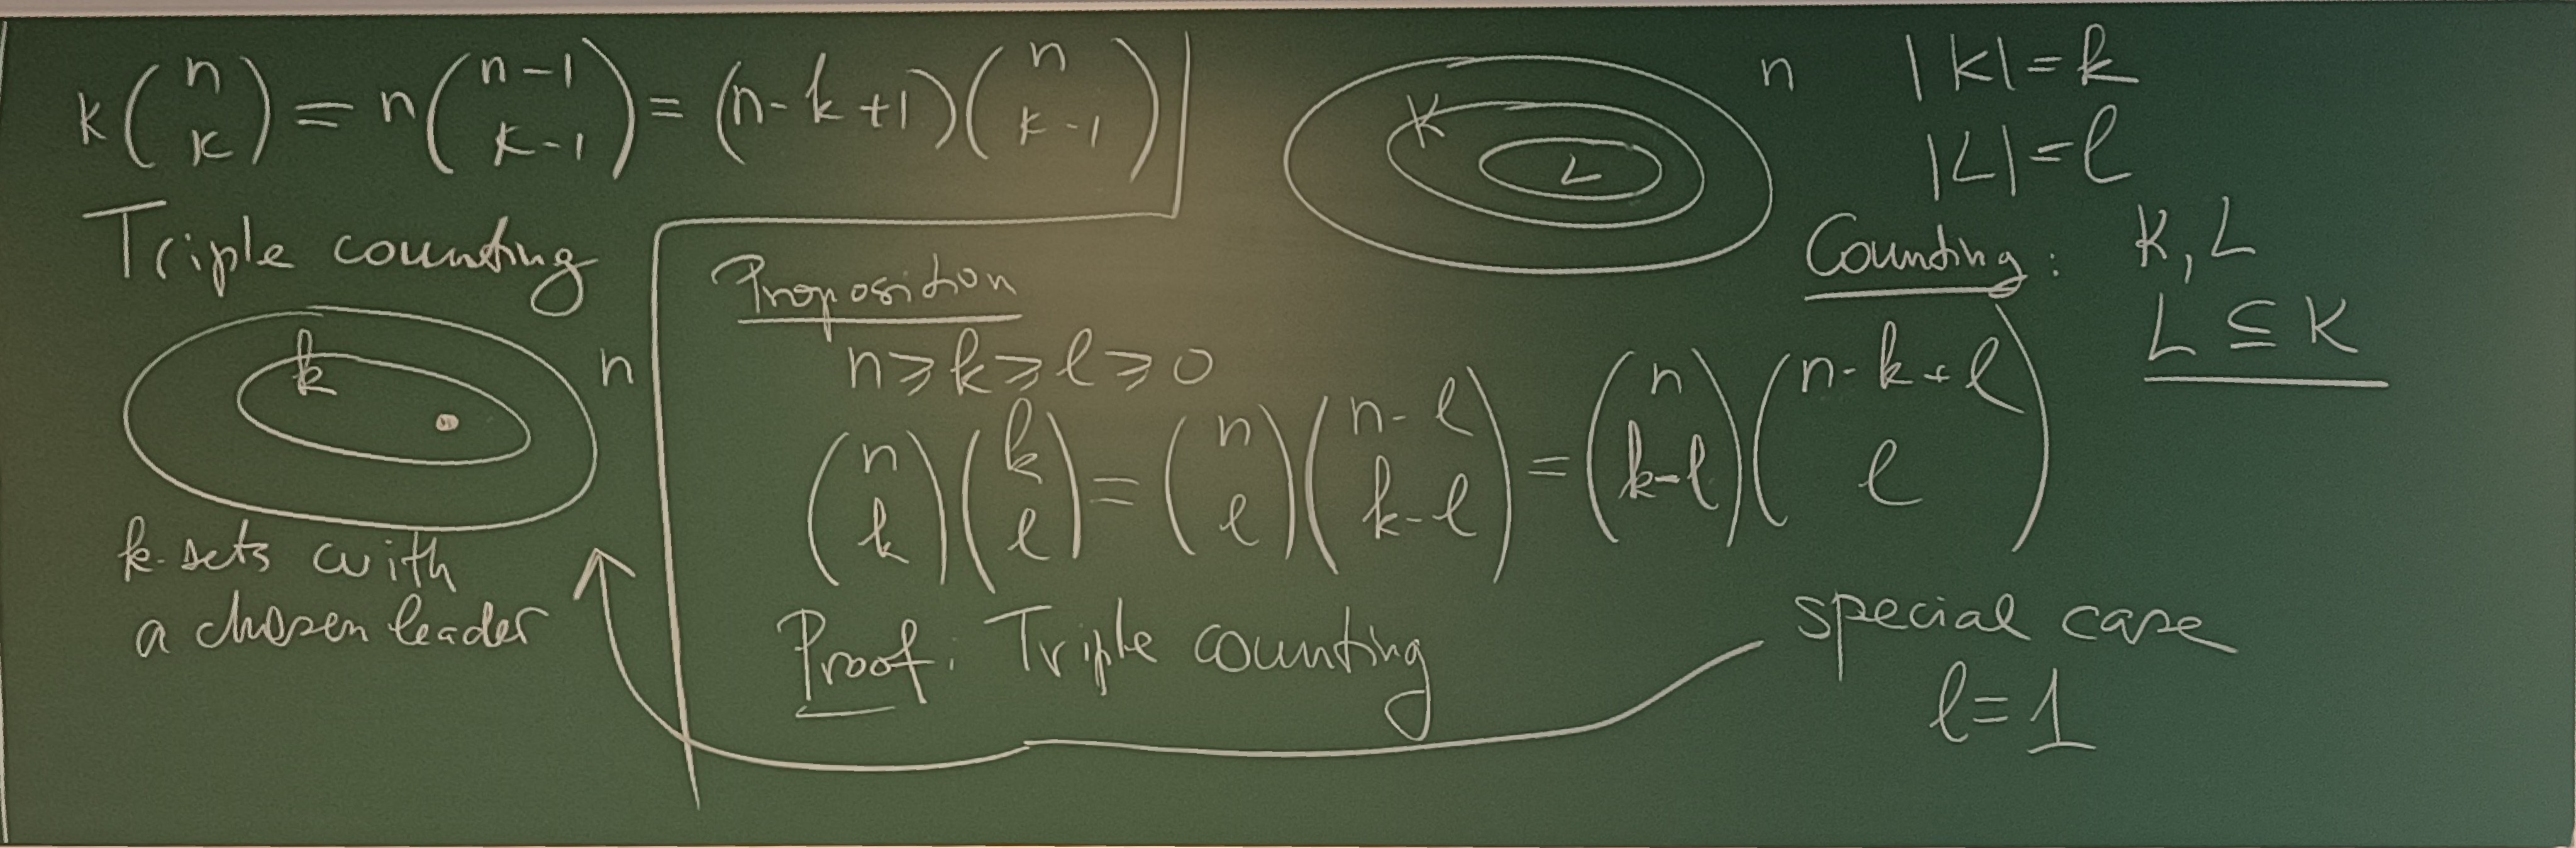 k(n k) = n(n-1 k-1) = (n-k+1)(n k-1)
Triple counting
k
n
k-sets with
a chosen leader
Proposition
n ⩾ k ⩾ l ⩾ 0
(n k)(k l) = (n l)(n-l k-l) = (n k-l)(n-k+l l)
Proof. Triple counting
K
L
n
|K| = k
|L| = l
Counting: K, L
L ⊆ K
special case
l = 1